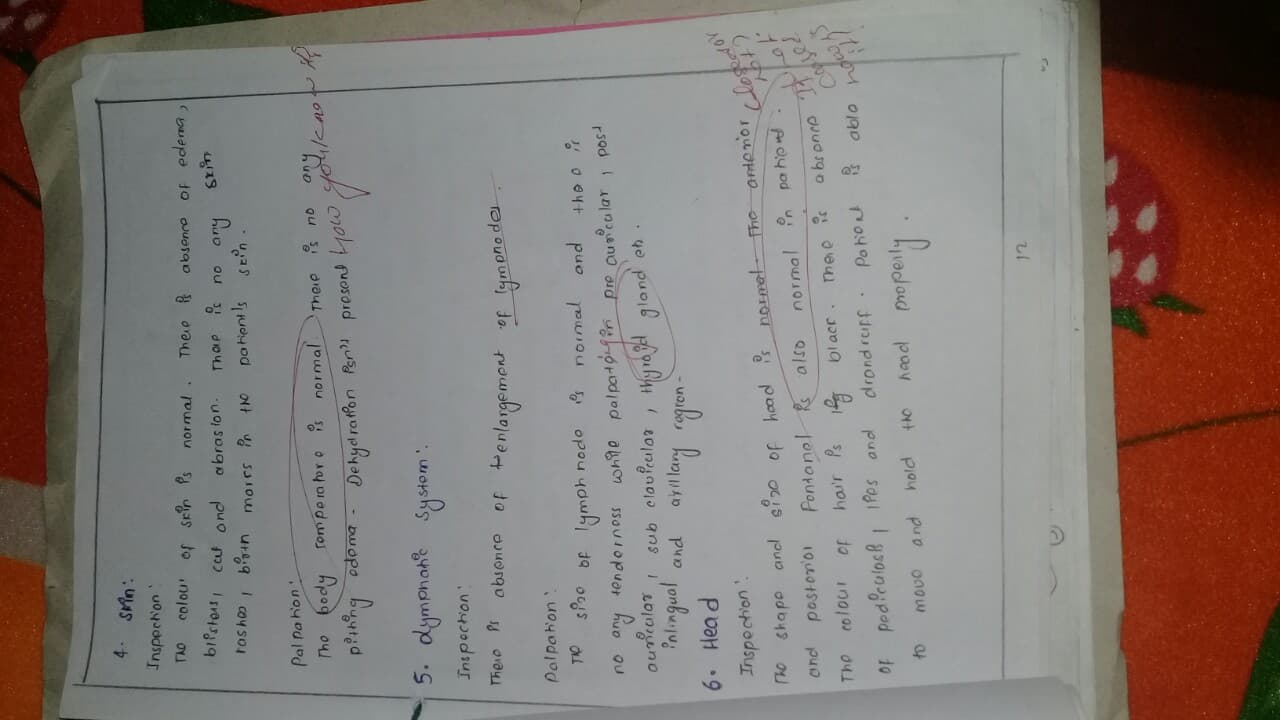 4. Skin:
Inspection:
The colour of skin is normal. There is absence of edema,
blisters, cut and abrasion. There is no any skin
rashes, birth marks in the patient's skin.
Palpation:
The body temperature is normal. There is no any
pitting edema - Dehydration isn't present How you know it?
5. Lymphatic System:
Inspection:
There is absence of enlargement of lymphnodes.
Palpation:
The size of lymph node is normal and there is
no any tenderness while palpating in pre auricular, post
auricular, sub clavicular, thyroid gland etc.
inlingual and axillary region-
6. Head
Inspection:
The shape and size of head is normal. The anterior closed or
and posterior Fontanel is also normal in patient. not?
The colour of hair is black. There is absence If not
of pediculosis, lies and drondruff. Patient is able closed how is
to move and hold the head properly. it!
12